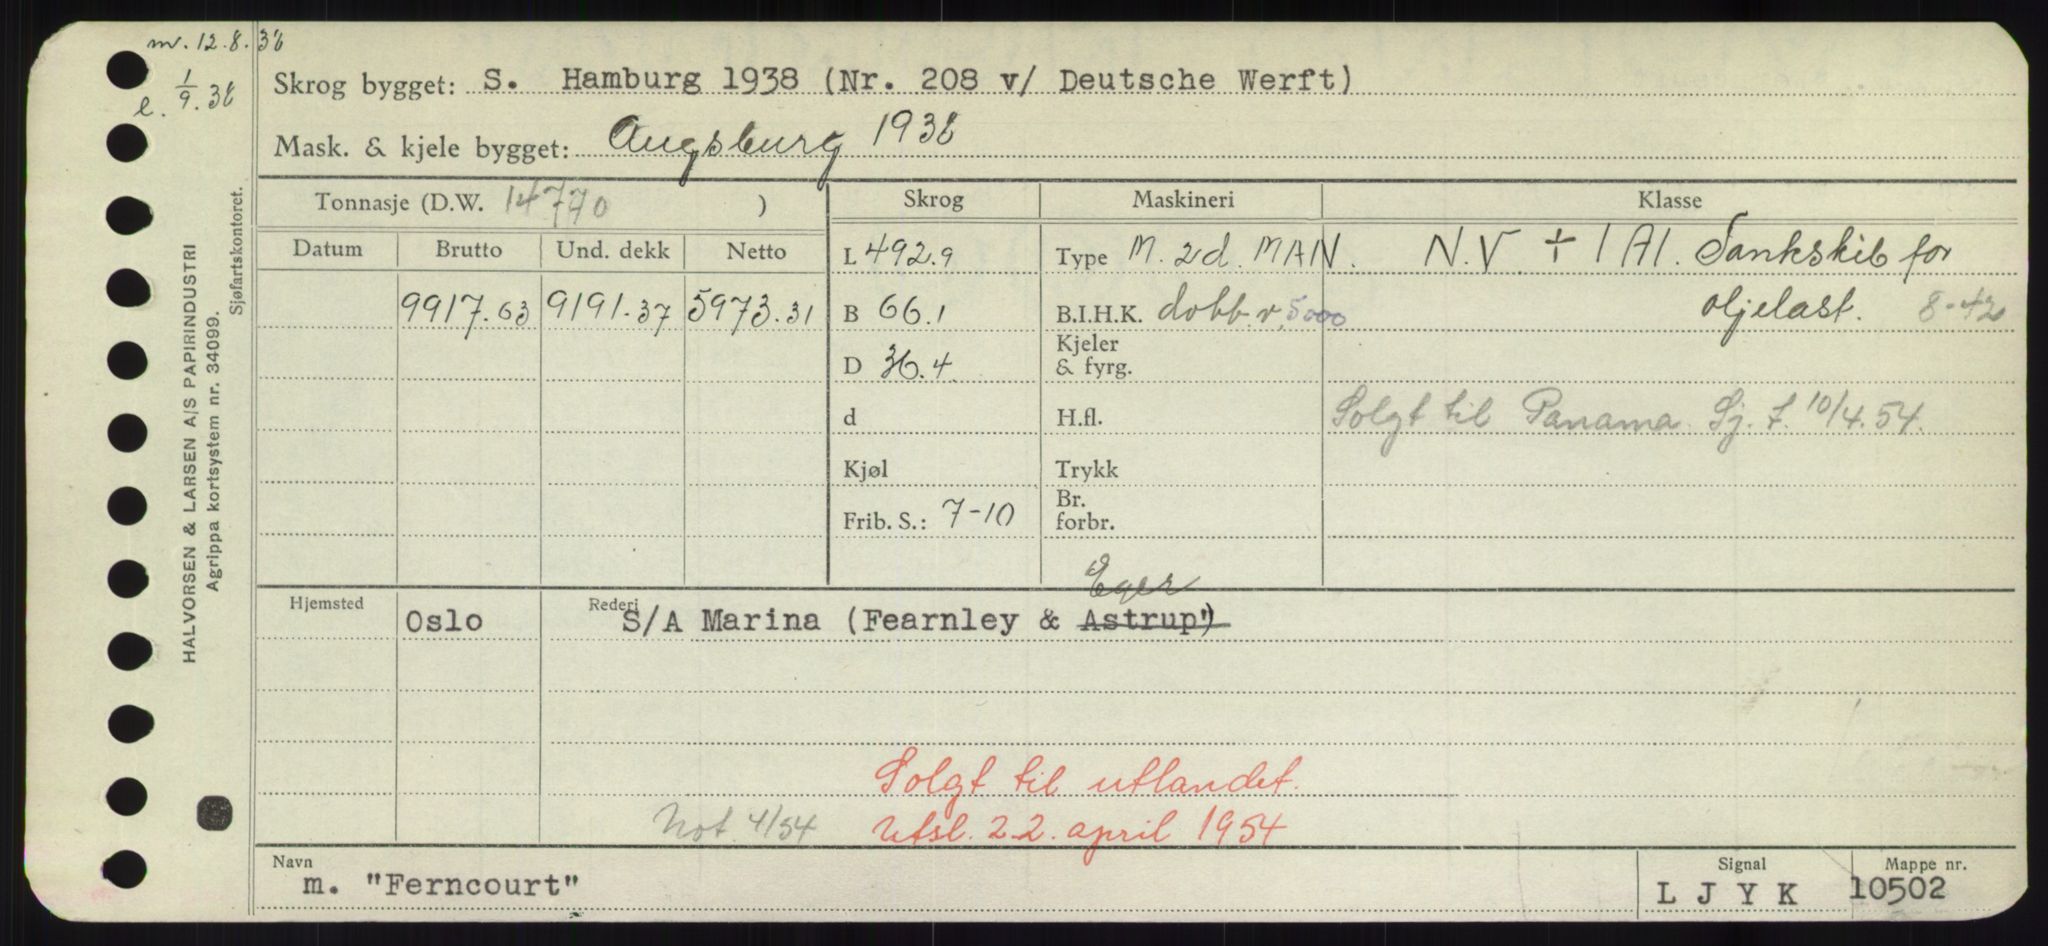 m. 12.8.38
e. 1/9.38
Skrog bygget: S. Hamburg 1938 (Nr. 208 v/ Deutsche Werft)
Mask. & kjele bygget: Augsburg 1938
Tonnasje (D.W. 14770 )
Skrog
Maskineri
Klasse
Datum
Brutto
Und. dekk
Netto
9917.63
9191.37
5973.31
L 492.9
B 66.1
D 36.4
d
Kjøl
Frib. S.: 7-10
Type M. 2d. MAN.
B.I.H.K. dobb. v. 5000
Kjeler
& fyrg.
H.fl.
Trykk
Br.
forbr.
N.V. + 1A1. Tankskib for
oljelast. 8-42
Solgt til Panama Sj. f. 10/4.54.
Hjemsted
Oslo
Rederi
Eger
S/A Marina (Fearnley & Astrup)
Solgt til utlandet.
Not. 4/54
Utsl. 22. april 1954
Navn
m. "Ferncourt"
Signal
L J Y K
Mappe nr.
10502
HALVORSEN & LARSEN A/S PAPIRINDUSTRI
Agrippa kortsystem nr. 34099.
Sjøfartskontoret.